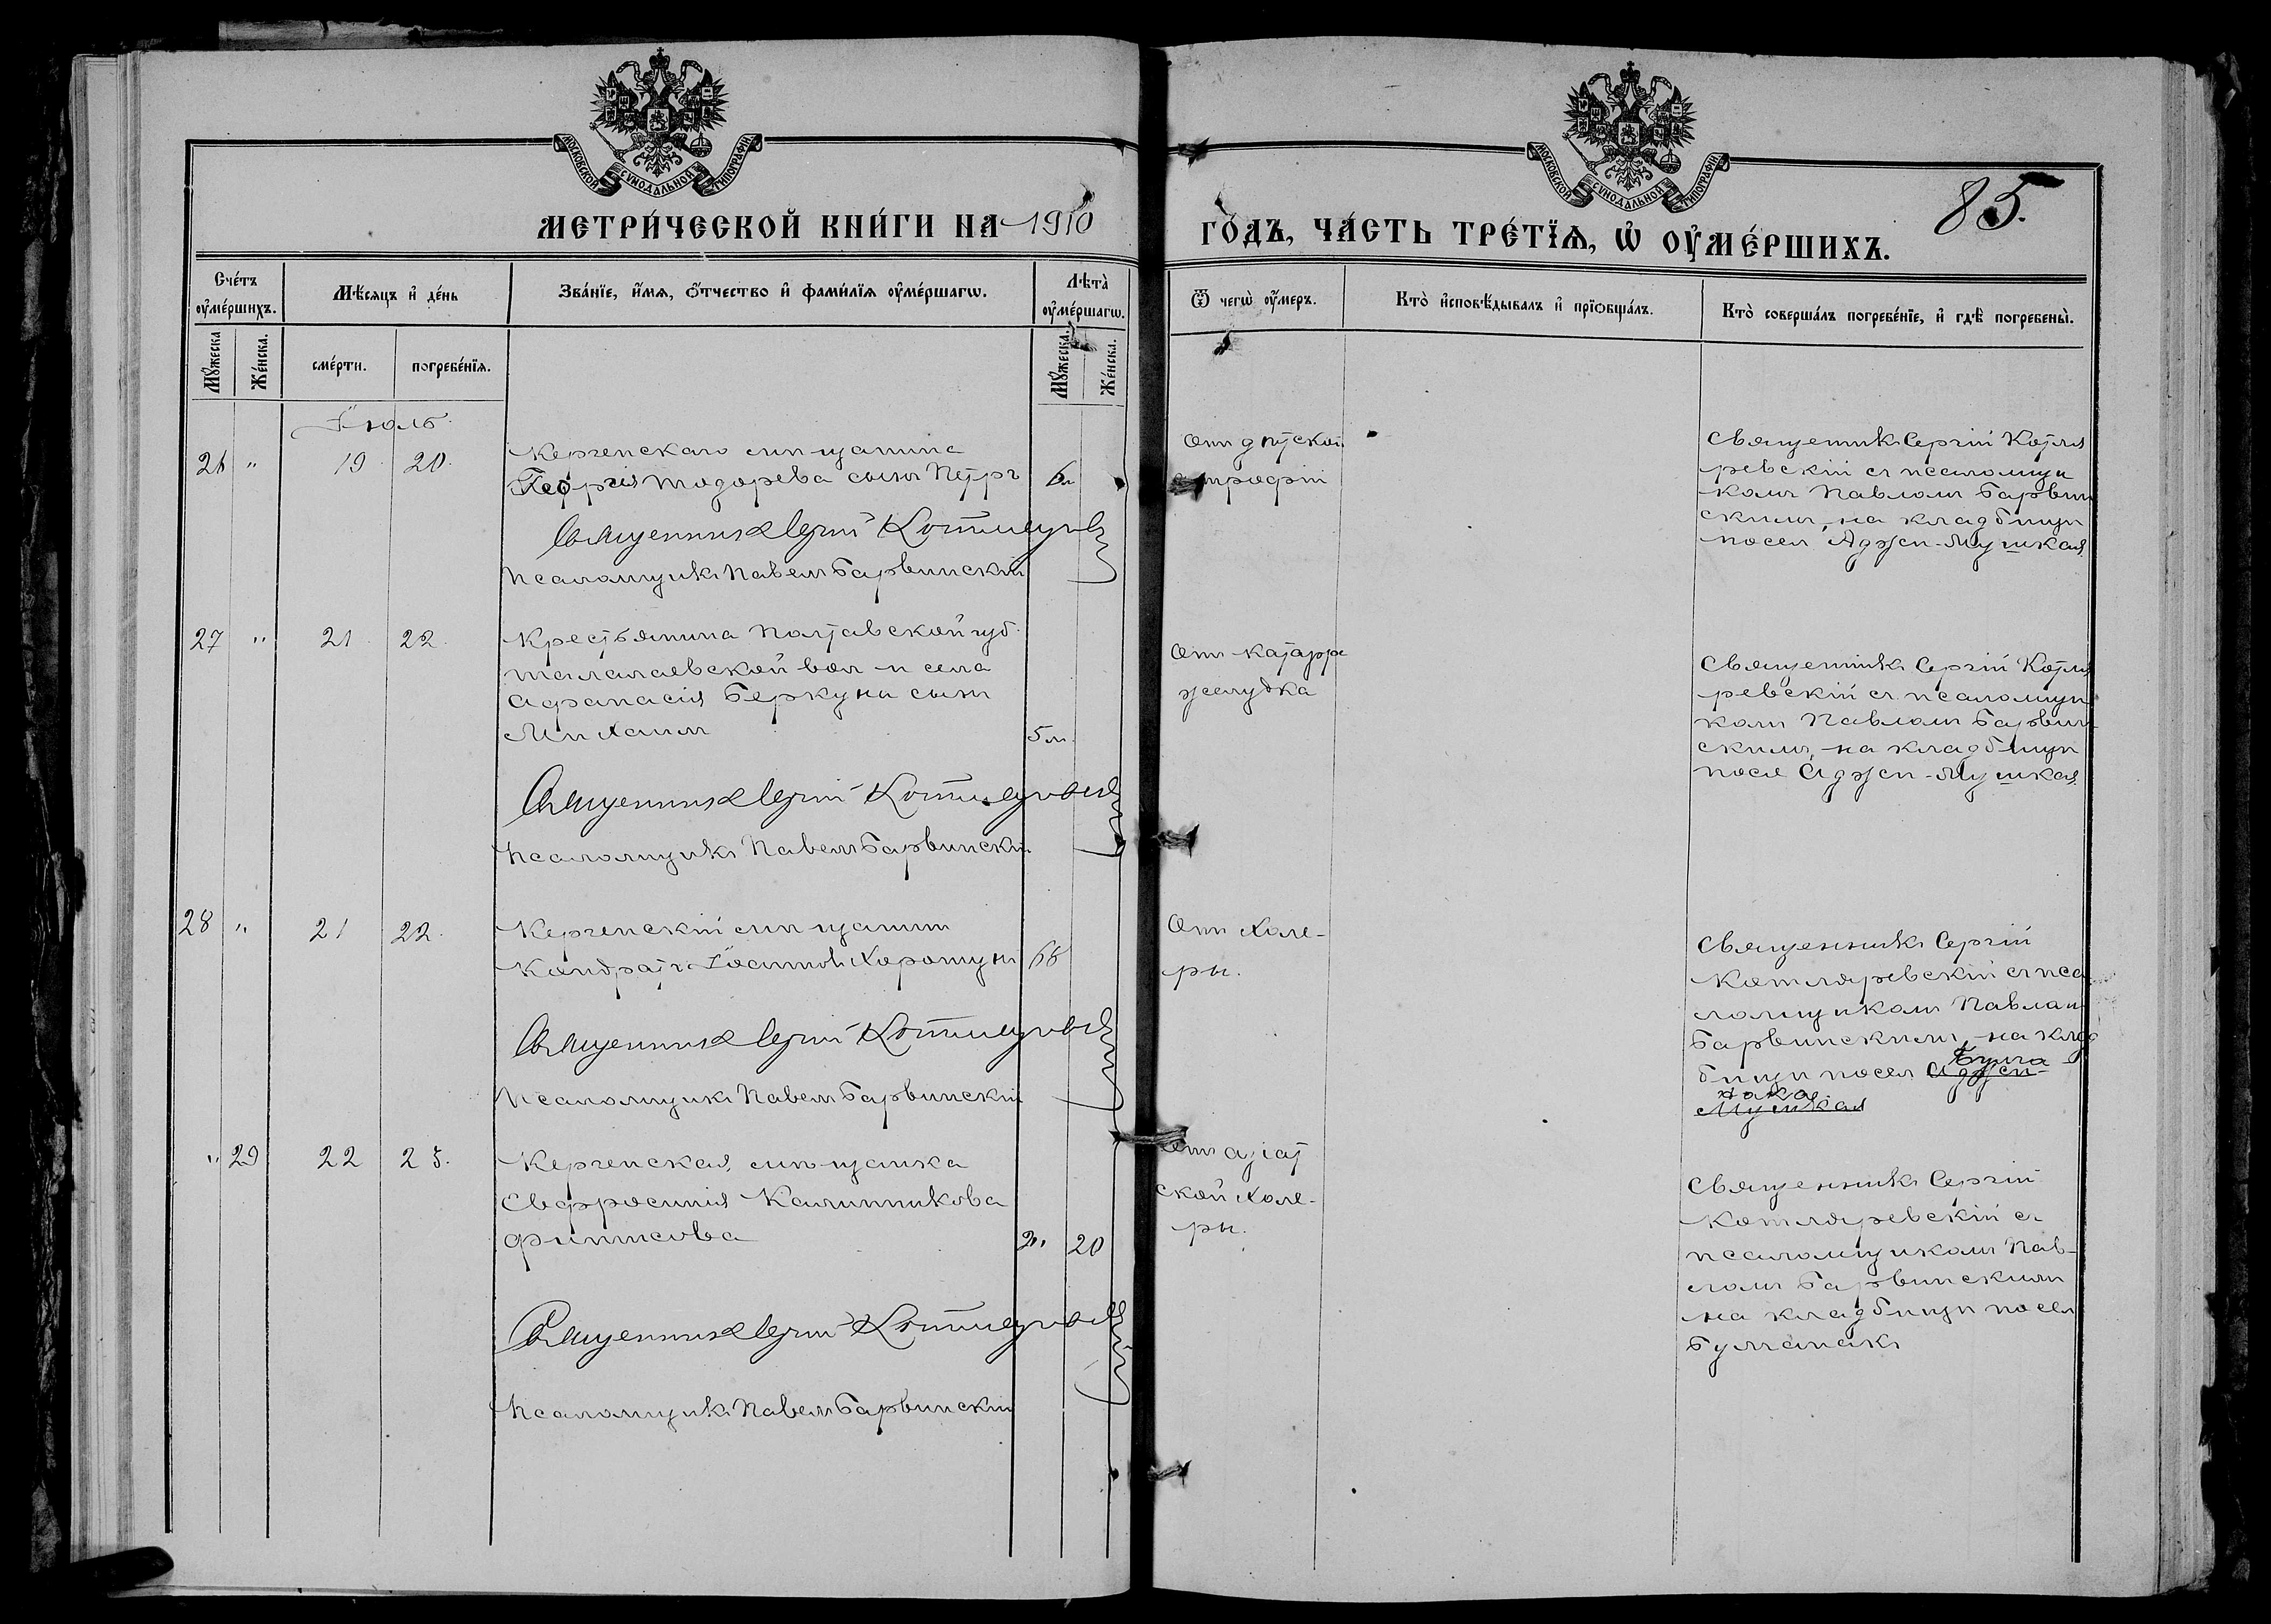 МОСКОВСКОЙ СѴНОДАЛЬНОЙ ТИПОГРАФІИ
МОСКОВСКОЙ СѴНОДАЛЬНОЙ ТИПОГРАФІИ
МЕТРИ́ЧЕСКОЙ КНИ́ГИ НА 1910
ГО́ДЪ, ЧА́СТЬ ТРЕ́ТЇѦ, Ѡ҆ ОУ҆МЕ́РШИХЪ.
85.
Сче́тъ оу҆ме́ршихъ.
Мѣ́сяцъ и҆ де́нь
Зва́нїе, и҆́мя, ѻ҆́тчество и҆ фами́лїя оу҆ме́ршагѡ.
Лѣта̀ оу҆ме́ршагѡ.
Ѿ чегѡ̀ оу҆́меръ.
Кто̀ и҆сповѣ́дывалъ и҆ прїѻбща́лъ.
Кто̀ соверша́лъ погребе́нїе, и҆ гдѣ̀ погребены̀.
Мꙋ́жеска
Же́нска.
сме́рти.
погребе́нїя.
Мꙋ́жеска.
Же́нска.
Іюль.
26 " 19 20.
Керченскаго мѣщанина
Георгія Тодорева сынъ Петръ 6м
Священникъ Сергій Котляревскій
Псаломщикъ Павелъ Барвинскій
Отъ дѣтской
атрофіи
Священникъ Сергій Котля
ревскій съ псаломщи
комъ Павломъ Барвин
скимъ, на кладбищѣ
посел Аджи-Мушкая
27 " 21 22.
Крестьянина Полтавской губ.
Талалаевской вол и села
Афанасія Беркуна сынъ
Михаилъ 5м.
Священникъ Сергій Котляревскій
Псаломщикъ Павелъ Барвинскій
Отъ катарра
желудка
Священникъ Сергій Котля
ревскій съ псаломщи
комъ Павломъ Барвин
скимъ, на кладбищѣ
посел Аджи-Мушкая
28 " 21 22.
Керченскій мѣщанинъ
Кондратъ Іоанновъ Хорошунъ 68
Священникъ Сергій Котляревскій
Псаломщикъ Павелъ Барвинскій
Отъ холе-
ры.
Священникъ Сергій
Котляревскій съ пса
ломщикомъ Павлом
Барвинскимъ, на клад
бищѣ посел. Аджи-
Мушкая
" 29 22 23.
Керченская мѣщанка
Евфросинія Калинникова
Филисова 20
Священникъ Сергій Котляревскій
Псаломщикъ Павелъ Барвинскій
Отъ азіат
ской холе-
ры.
Священникъ Сергій
Котляревскій съ
псаломщикомъ Пав-
ломъ Барвинскимъ
на кладбищѣ посел
Булганакъ